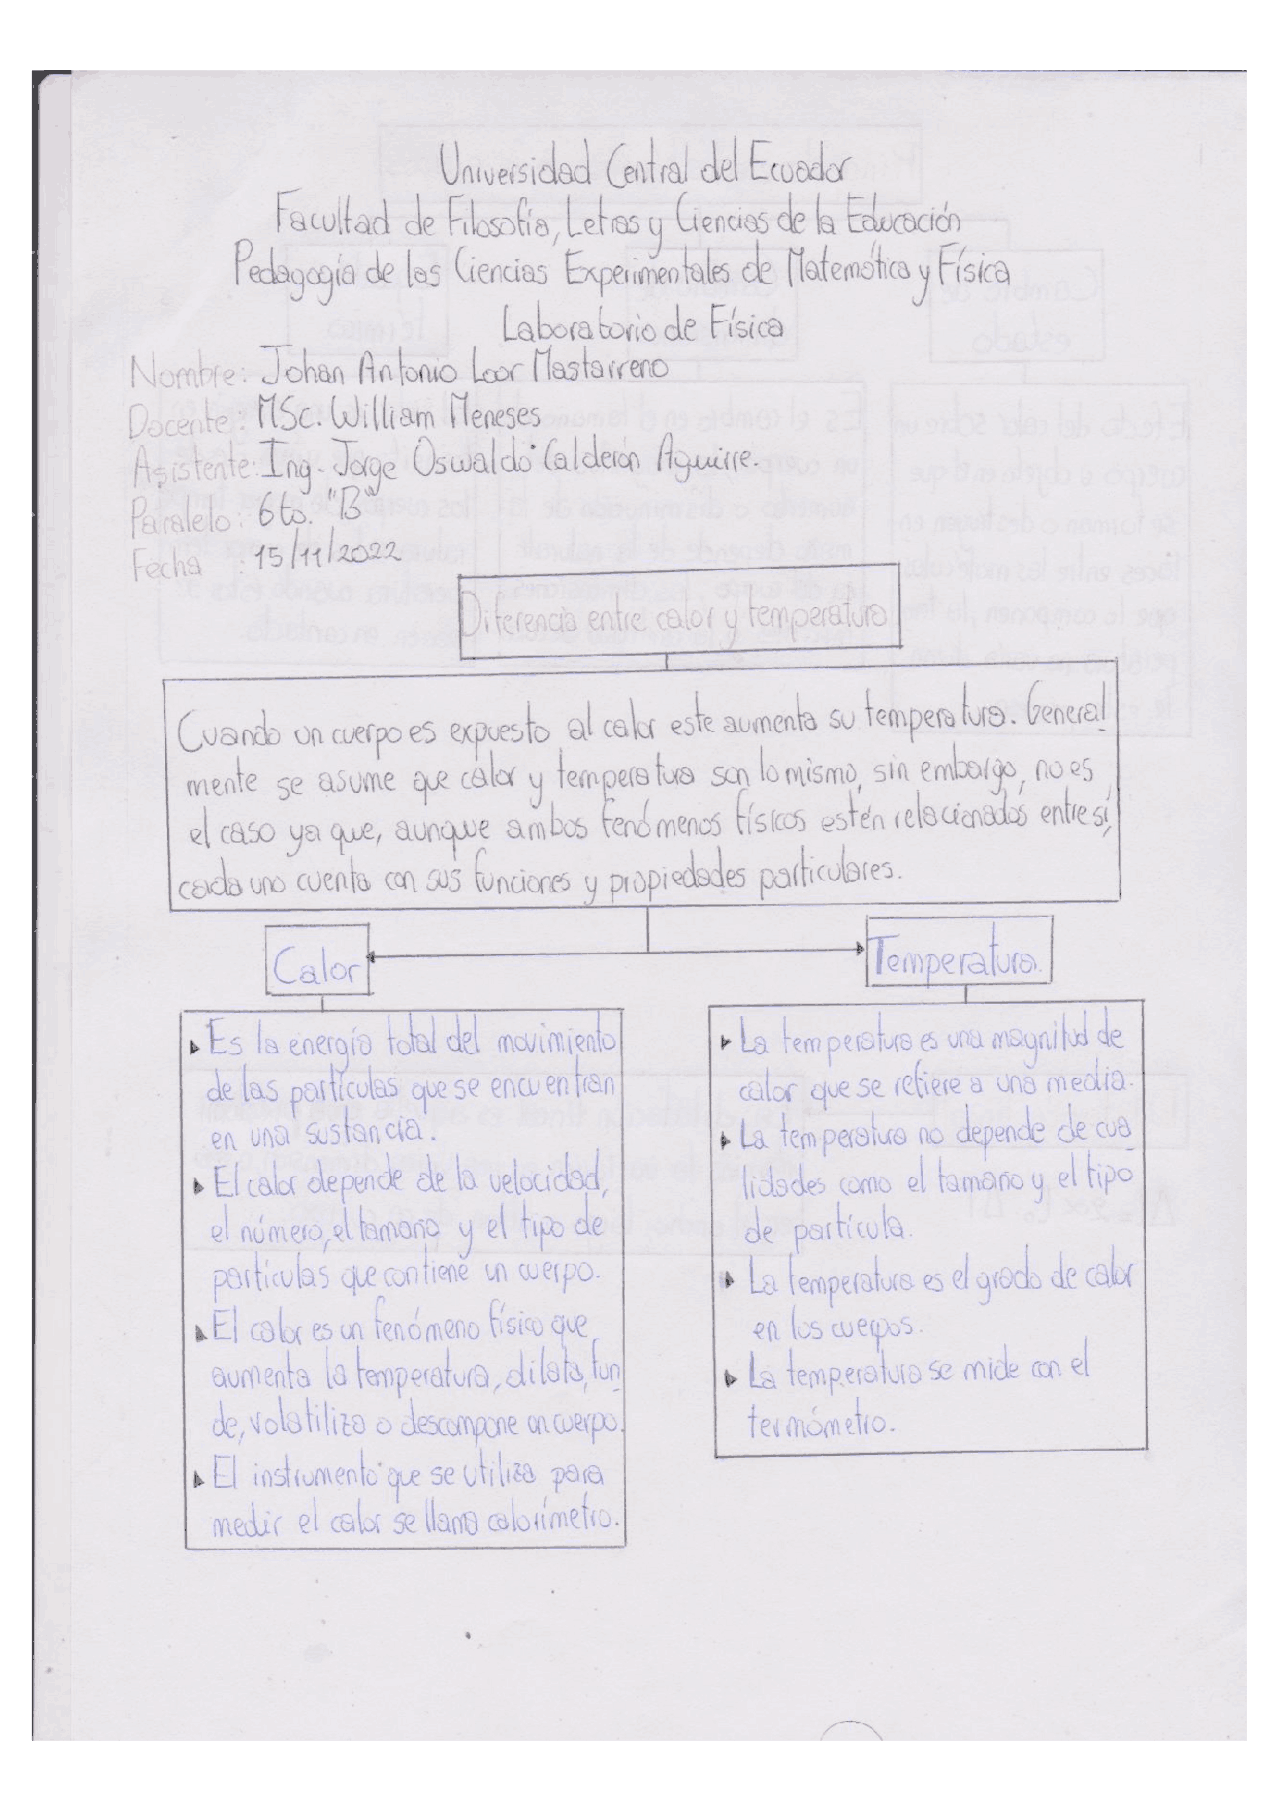 Universidad Central del Ecuador
Facultad de Filosofía, Letras y Ciencias de la Educación
Pedagogía de las Ciencias Experimentales de Matemática y Física
Laboratorio de Física
Nombre: Johan Antonio Loor Mastarreno
Docente: MSc. William Meneses
Asistente: Ing. Jorge Oswaldo Calderón Aguirre.
Paralelo: 6to. "B"
Fecha : 15/11/2022
Diferencia entre calor y temperatura
Cuando un cuerpo es expuesto al calor este aumenta su temperatura. General
mente se asume que calor y temperatura son lo mismo, sin embargo, no es
el caso ya que, aunque ambos fenómenos físicos estén relacionados entre sí,
cada uno cuenta con sus funciones y propiedades particulares.
Calor
Temperatura.
Es la energía total del movimiento
de las partículas que se encuentran
en una sustancia.
El calor depende de la velocidad,
el número, el tamaño y el tipo de
partículas que contiene un cuerpo.
El calor es un fenómeno físico que
aumenta la temperatura, dilata, fun
de, volatiliza o descompone un cuerpo.
El instrumento que se utiliza para
medir el calor se llama calorímetro.
La temperatura es una magnitud de
calor que se refiere a una media.
La temperatura no depende de cua
lidades como el tamaño y el tipo
de partícula.
La temperatura es el grado de calor
en los cuerpos.
La temperatura se mide con el
termómetro.